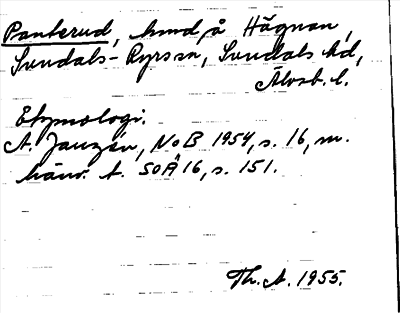 Panterud, hmd å Hågnan,
Sundals-Ryrs sn, Sundals hd,
Älvsb. l.
Etymologi.
A. Janzén, NoB 1954, s. 16, m.
hänv. t. SOÄ 16, s. 151.
Th. A. 1955.